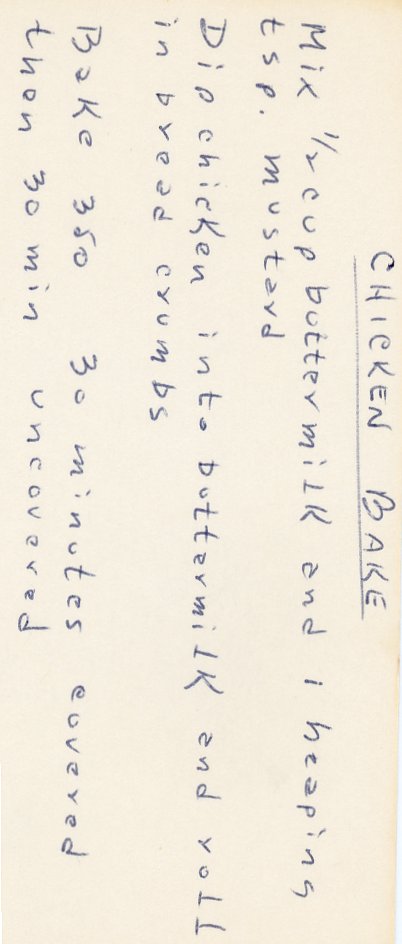 CHICKEN BAKE
Mix 1/2 cup buttermilk and 1 heaping
tsp. mustard
Dip chicken into buttermilk and roll
in bread crumbs
Bake 350 30 minutes covered
then 30 min uncovered